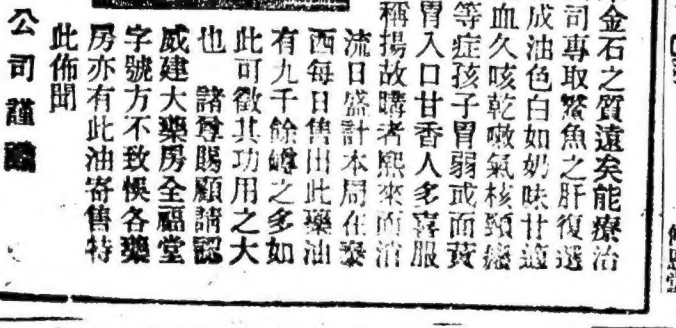 金石之質遠矣能療治
司專取鰵魚之肝復選
成油色白如奶味甘適
血久咳乾嗽氣核頸癧
等症孩子胃弱或面黃
胃入口甘香人多喜服
稱揚故購者熙來而消
流日盛計本局在泰
西每日售出此藥油
有九千餘罇之多如
此可徵其功用之大
也 諸尊賜顧請認
威建大藥房全福堂
字號方不致悞各藥
房亦有此油寄售特
此佈聞
公司謹